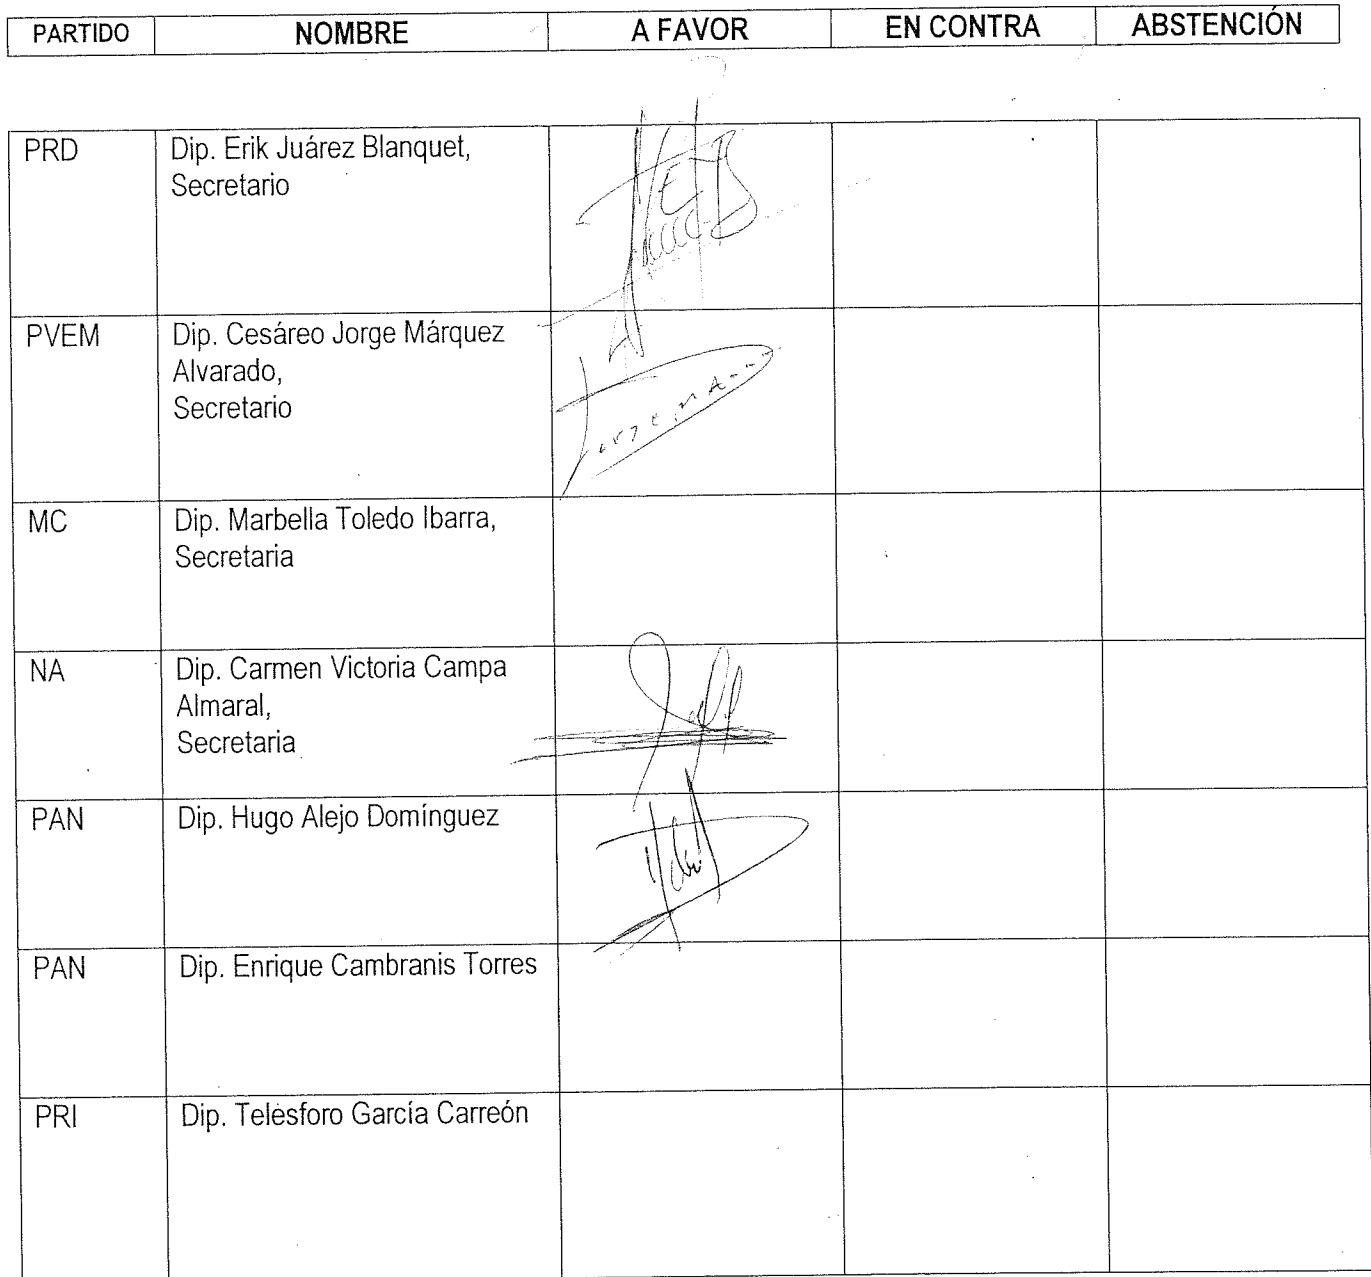 PARTIDO NOMBRE A FAVOR EN CONTRA ABSTENCIÓN
PRD Dip. Erik Juárez Blanquet,
Secretario
PVEM Dip. Cesáreo Jorge Márquez
Alvarado,
Secretario
MC Dip. Marbella Toledo Ibarra,
Secretaria
NA Dip. Carmen Victoria Campa
Almaral,
Secretaria
PAN Dip. Hugo Alejo Domínguez
PAN Dip. Enrique Cambranis Torres
PRI Dip. Telésforo García Carreón